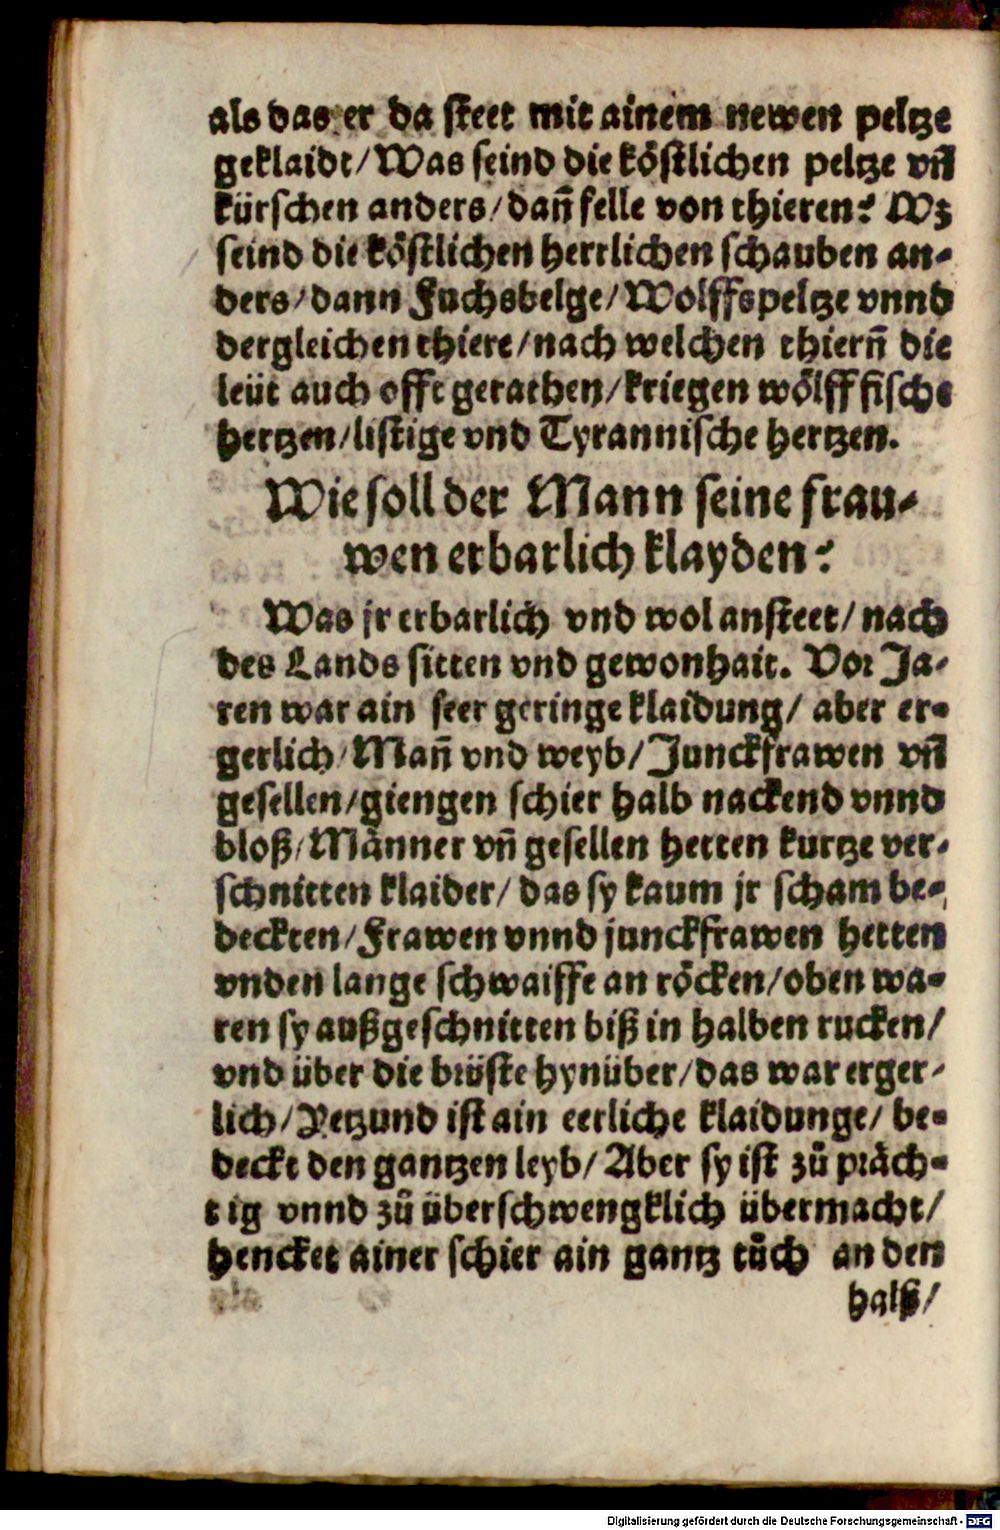 als das er da steet mit ainem newen peltze
geklaidt/Was seind die köstlichen peltze vñ
kürschen anders/dañ felle von thieren? Wz
seind die köstlichen herrlichen schauben an-
ders/dann Fuchsbelge/Wolffspeltze vnnd
dergleichen thiere/nach welchen thierñ die
leüt auch offt gerathen/kriegen wölffische
hertzen/listige vnd Tyrannische hertzen.
Wie soll der Mann seine frau-
wen erbarlich klayden?
Was jr erbarlich vnd wol ansteet/nach
des Lands sitten vnd gewonhait. Vor Ja-
ren war ain seer geringe klaidung/ aber er-
gerlich/Mañ vnd weyb/Junckfrawen vñ
gesellen/giengen schier halb nackend vnnd
bloß/Männer vñ gesellen hetten kurtze ver-
schnitten klaider/das sy kaum jr scham be-
deckten/Frawen vnnd junckfrawen hetten
vnden lange schwaiffe an röcken/oben wa-
ren sy außgeschnitten biß in halben rucken/
vnd über die brüste hynüber/das war erger-
lich/Yetzund ist ain eerliche klaidunge/be-
deckt den gantzen leyb/Aber sy ist zů präch-
tig vnnd zů überschwengklich übermacht/
hencket ainer schier ain gantz tůch an den
halß/
Digitalisierung gefördert durch die Deutsche Forschungsgemeinschaft - DFG